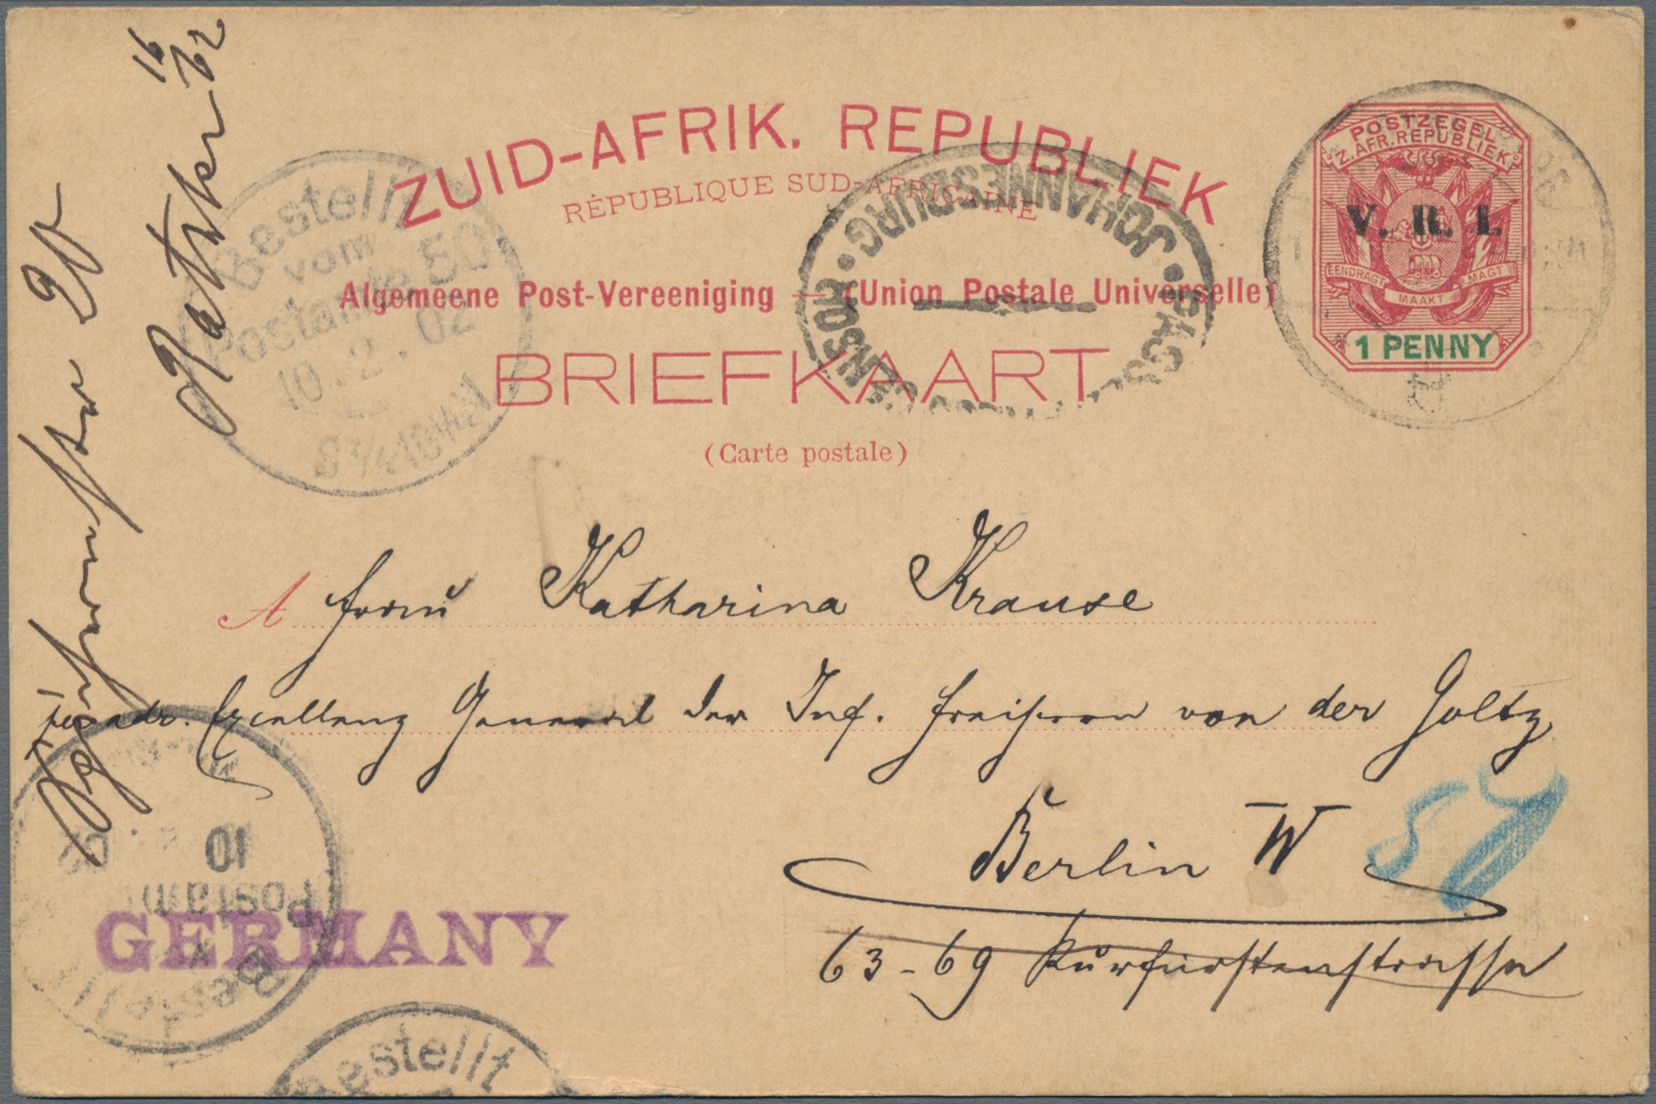 ZUID-AFRIK. REPUBLIEK
RÉPUBLIQUE SUD-AFRICAINE
Algemeene Post-Vereeniging — (Union Postale Universelle)
BRIEFKAART
(Carte postale)
POSTZEGEL
Z. AFR. REPUBLIEK
V. R. I.
EENDRAGT MAAKT MAGT
1 PENNY
JOHANNESBURG
Bestellt
vom
Postamte 50
10.2.02
A Frau Katharina Krause
per adr. Excellenz General der Inf. Freiherrn von der Goltz
Berlin W
63-69 Kurfürstenstrasse
50
16
62
GERMANY
10
Postamt
Bestellt
Bestellt